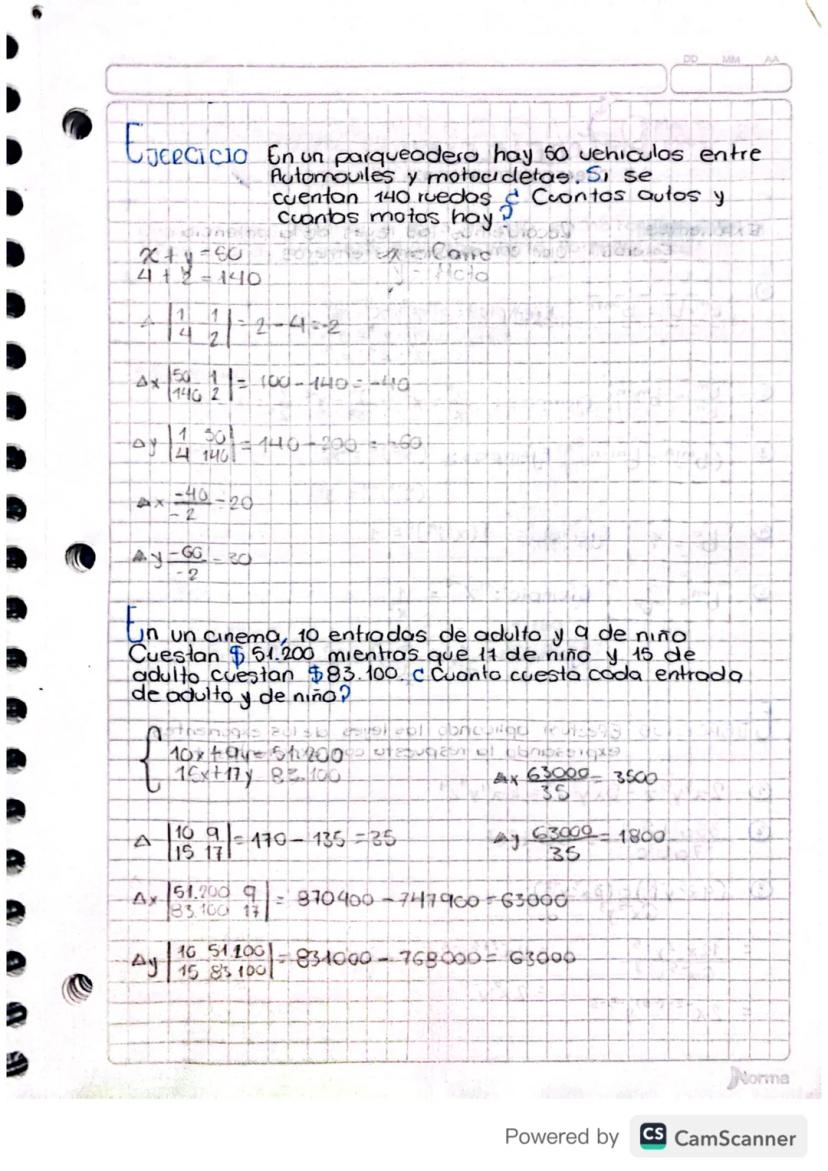 DD MM AA
Ejercicio En un parqueadero hay 50 vehiculos entre
Automoviles y motocicletas. Si se
cuentan 140 ruedas ¿ Cuantos autos y
cuantas motos hay?
x + y = 50
x = Carro
4 + 2 = 140
y = Moto
Δ |1 1| = 2 - 4 = -2
|4 2|
Δx |50 1| = 100 - 140 = -40
|140 2|
Δy |1 50| = 140 - 200 = -60
|4 140|
Δx -40 = 20
-2
Δy -60 = 30
-2
En un cinema, 10 entradas de adulto y 9 de niño
Cuestan $ 51.200 mientras que 17 de niño y 15 de
adulto cuestan $ 83.100. ¿ Cuanto cuesta cada entrada
de adulto y de niño?
10x + 9y = 51.200
15x + 17y 83.100
Δx 63000 = 3500
35
Δ |10 9| = 170 - 135 = 35
|15 17|
Δy 63000 = 1800
35
Δx |51.200 9| = 870400 - 747900 = 63000
|83.100 17|
Δy |10 51.200| = 831000 - 768000 = 63000
|15 83 100|
Norma
Powered by CS CamScanner